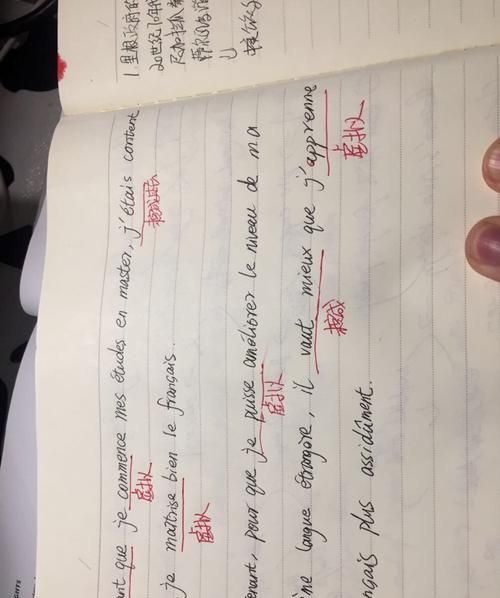 1. 里根政府的
20世纪70年代
ant que je commence mes études en master, j'étais content
虚拟
je maîtrise bien le français.
虚拟
enant, pour que je puisse améliorer le niveau de ma
虚拟
me langue étrangère, il vaut mieux que j'apprenne
虚拟
nçais plus assidûment.